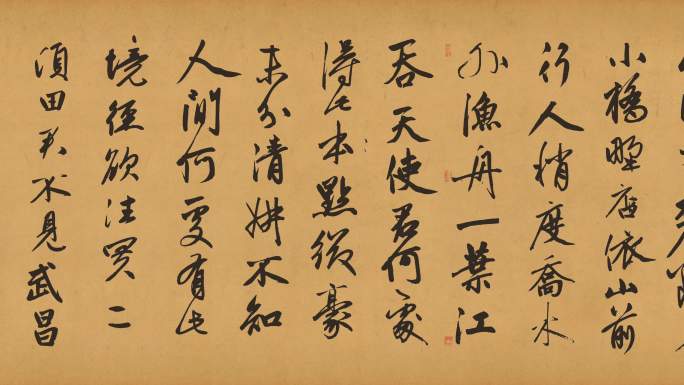 小橋野店依山前
行人稍度喬木
外漁舟一葉江
吞天使君何處
得此本點綴豪
末分清妍不知
人間何處有此
境徑欲往買二
頃田君不見武昌